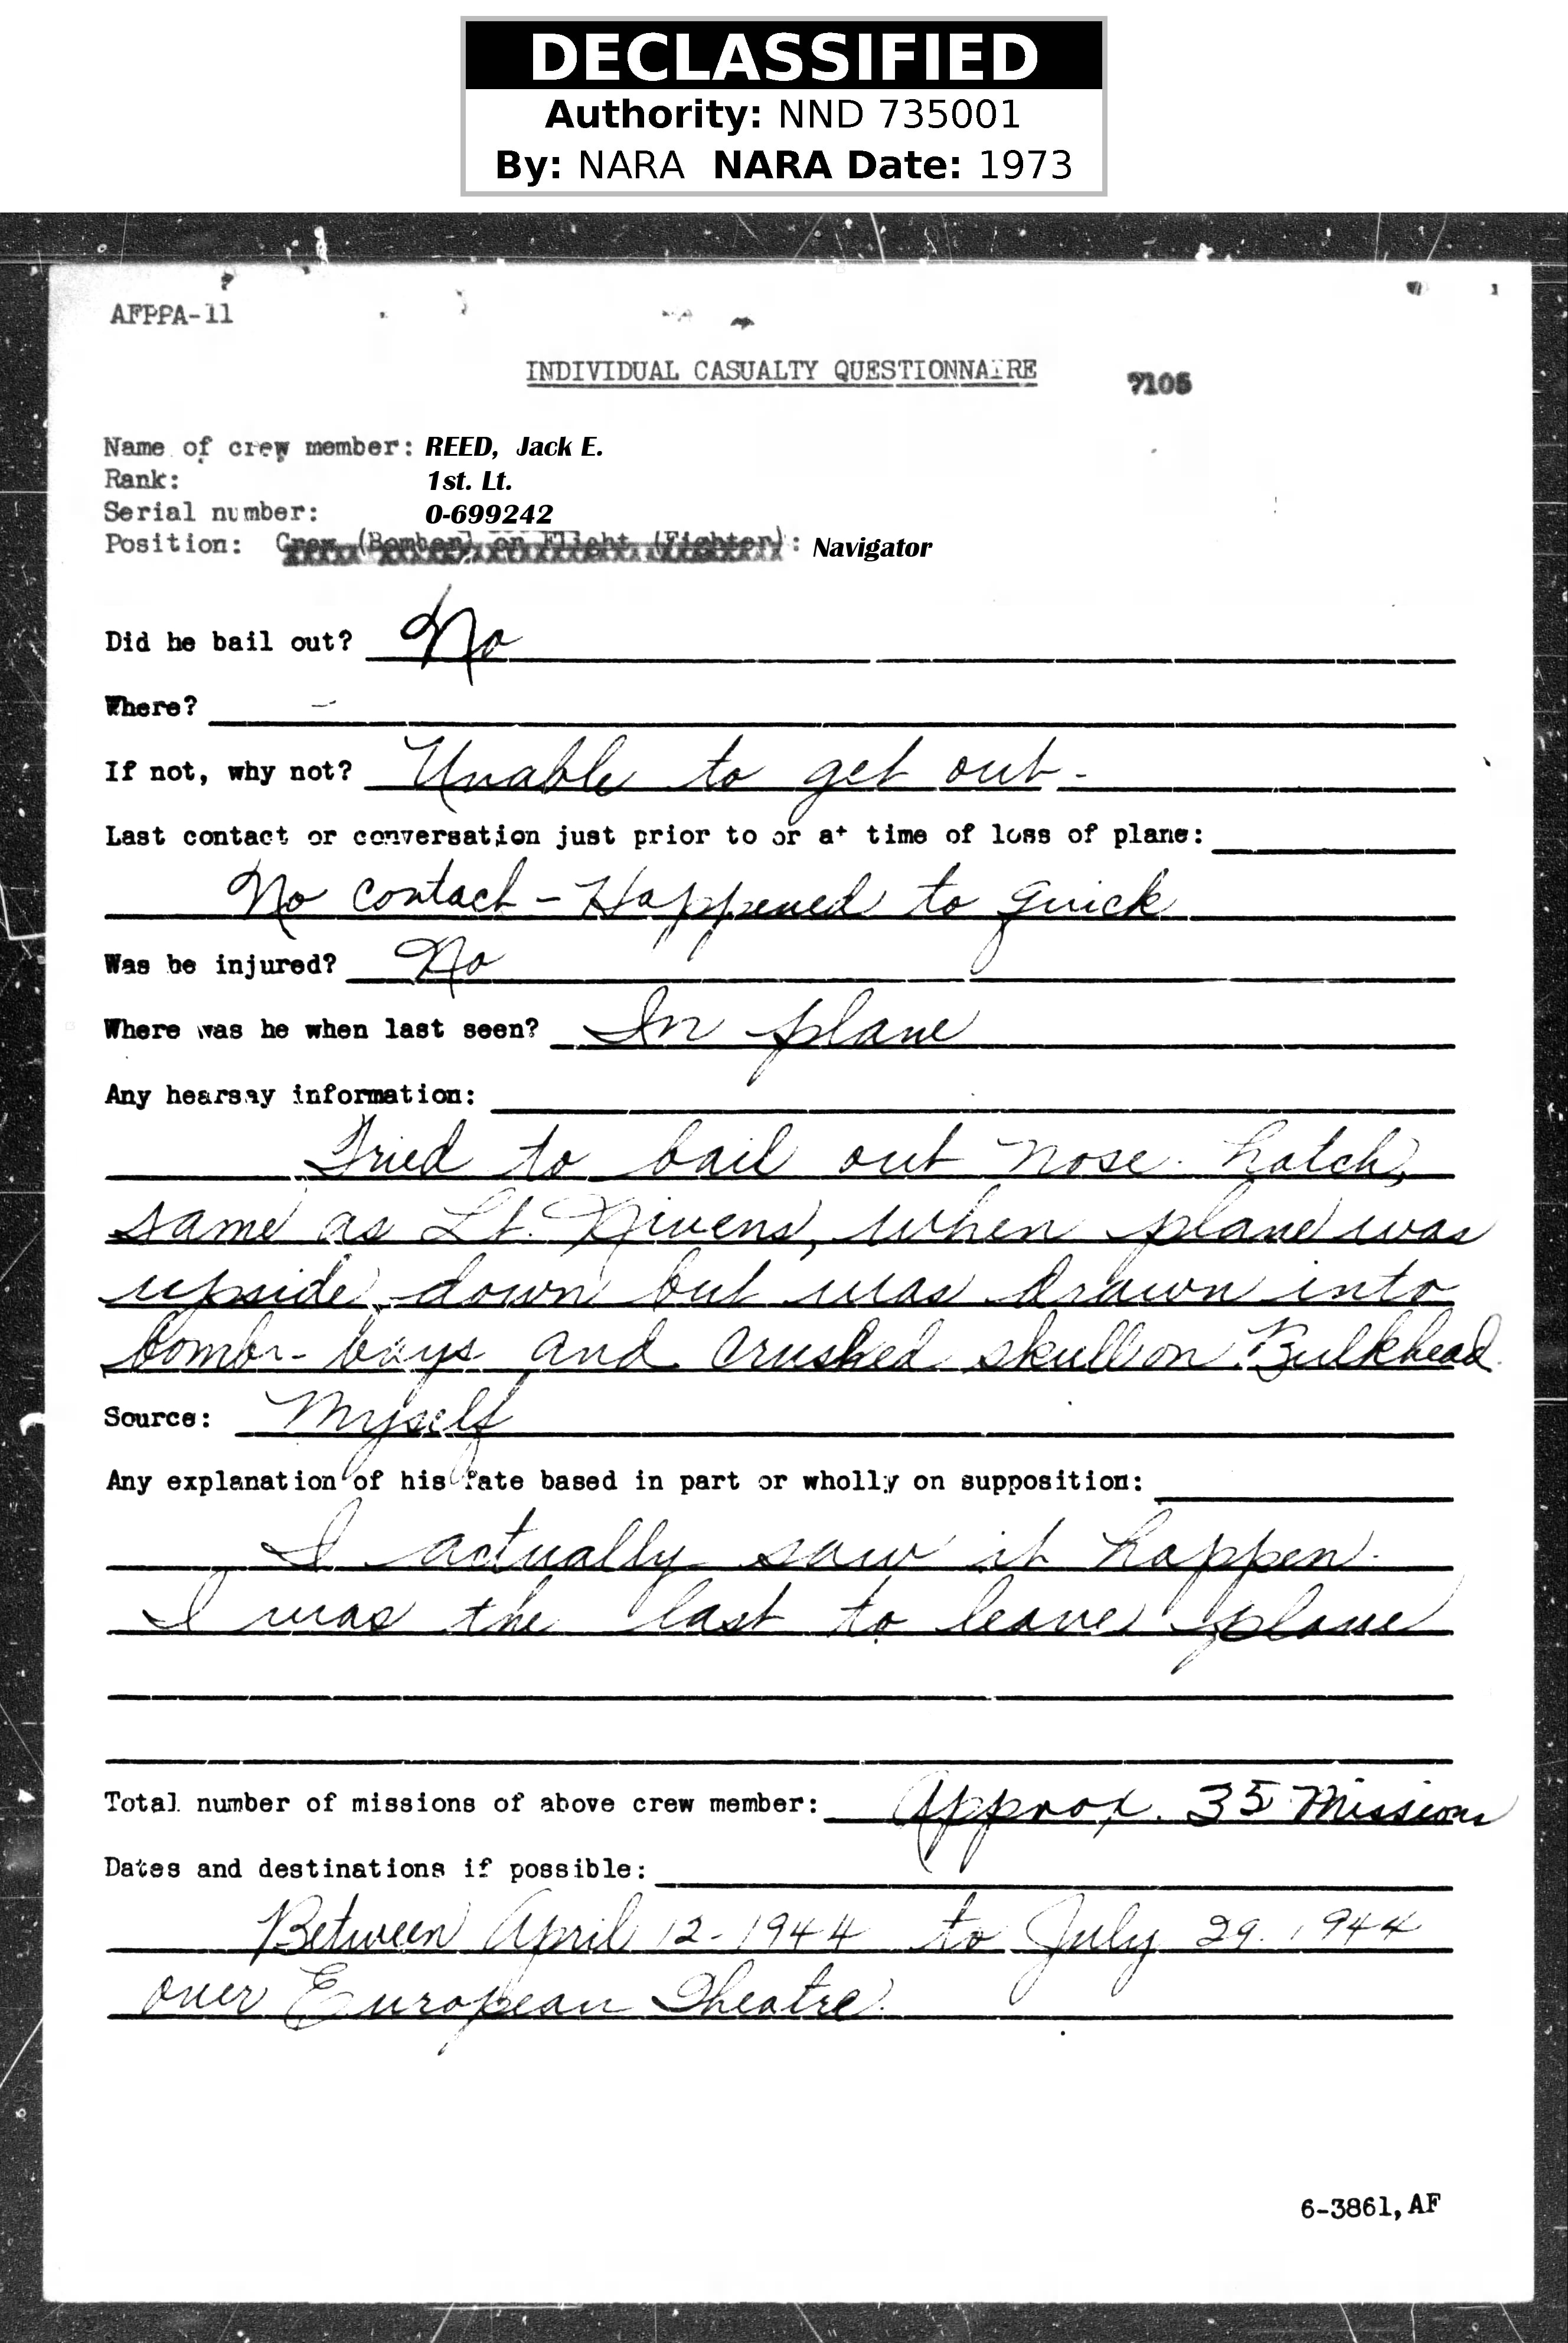 DECLASSIFIED
Authority: NND 735001
By: NARA NARA Date: 1973
AFPPA-11
INDIVIDUAL CASUALTY QUESTIONNAIRE 7105
Name of crew member: REED, Jack E.
Rank: 1st. Lt.
Serial number: 0-699242
Position: Crew (Bomber) or Flight (Fighter): Navigator
Did he bail out? No
Where? -
If not, why not? Unable to get out -
Last contact or conversation just prior to or at time of loss of plane:
No contact - Happened to quick
Was he injured? No
Where was he when last seen? In plane
Any hearsay information:
Tried to bail out nose hatch,
same as Lt. Nivens, when plane was
upside down but was drawn into
bomb-bays and crushed skull on Bulkhead.
Source: Myself
Any explanation of his fate based in part or wholly on supposition:
I actually saw it happen.
I was the last to leave plane
Total number of missions of above crew member: Approx. 35 Missions
Dates and destinations if possible:
Between April 12-1944 to July 29. 1944
over European Theatre.
6-3861, AF